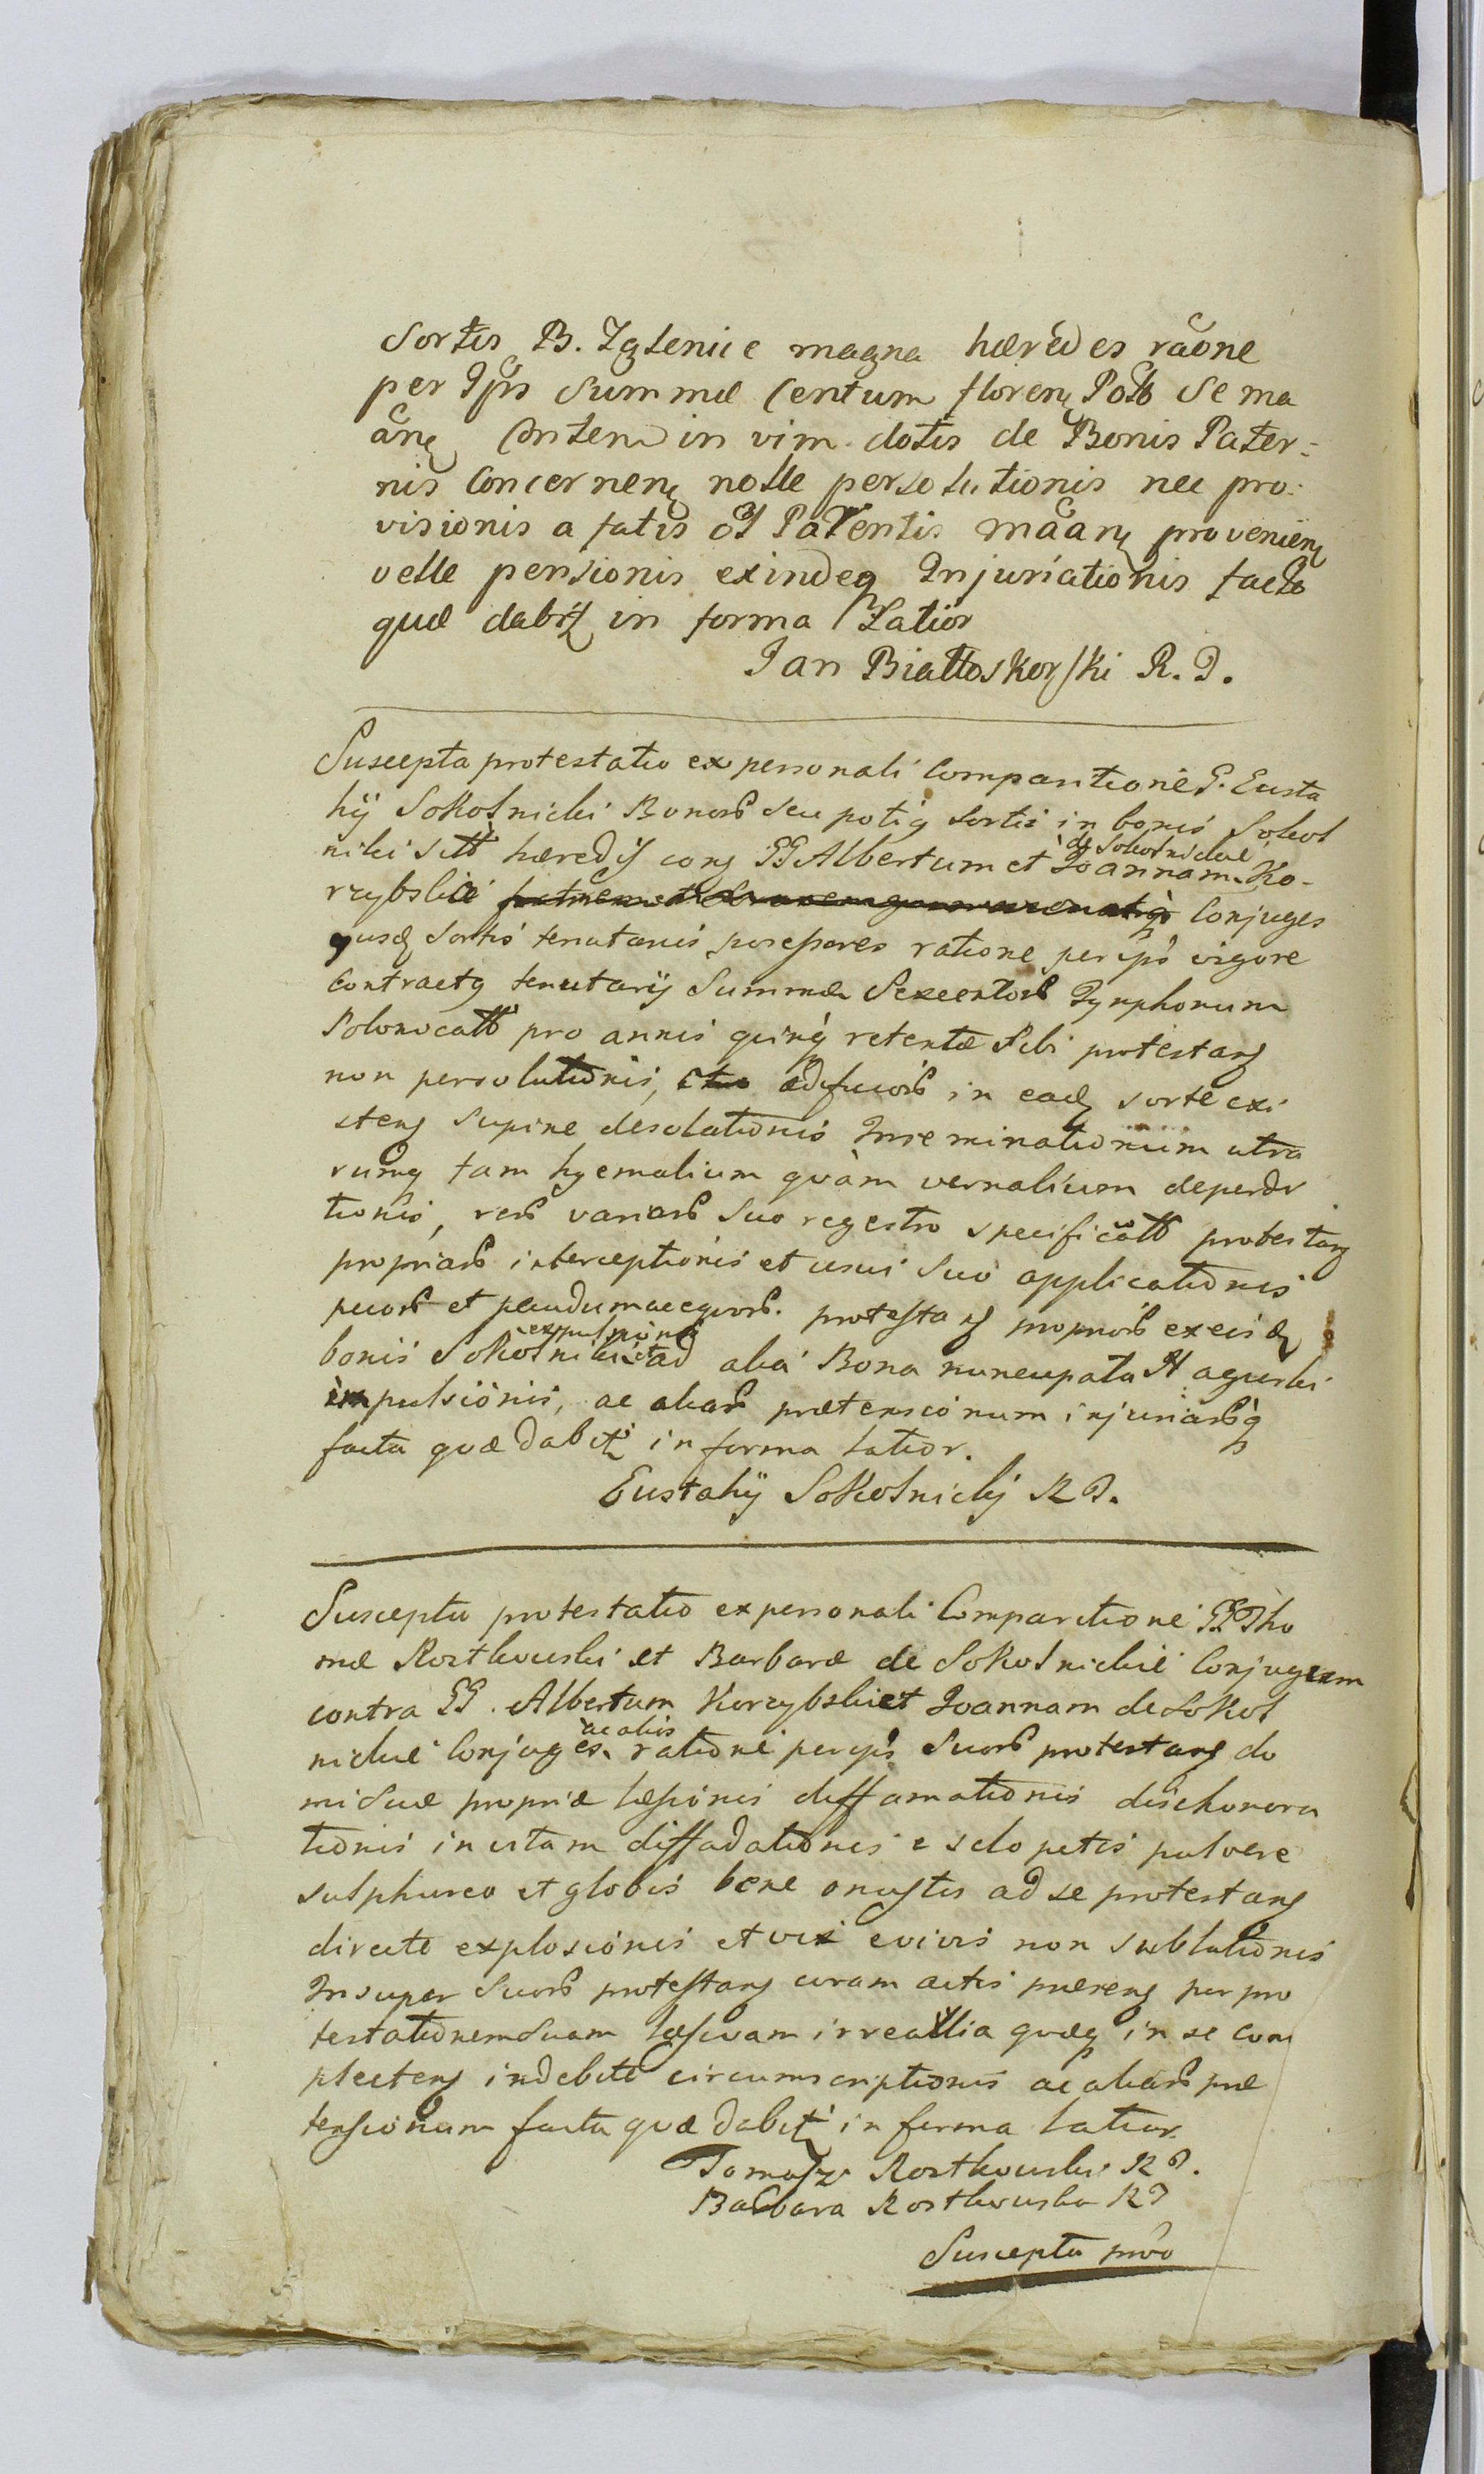 Sortis B. Iglenice magna hæredes raone
per Ips Summæ Centum floren Pol Se ma
arn Conten in vim dotis de Bonis Pater=
nis Concernen nolle persolutionis nec pro:
visionis a fatis Parentis maarn provenien
velle pensionis exindeq Injuriationis facta
quæ dabit in forma Latior
Jan Białłoskorski R. J.
Suscepta protestatio ex personali Comparitione G. Eusta
hij Sokolnicki Bonor Seu potiq Sortis in bonis Sokol
niki sitt hæredis con GG Albertum et Joannam de Sokolnickie Ko-
rzybskie Conjuges
ejusd Sortis tenutarios possessores ratione per ips vigore
Contractq tenutarij Summæ Sexcentor Tynphonum
Polonicall pro annis quinq retentæ Sibi protestan
non persolutionis, ædificior in ead sorte exi
sten supine desolationis Inseminationum utra
rumq tam hyemalium quàm vernalium deperdi
tionis, rer variar Suo regestro specificatt protestan
propriar interceptionis et usui Suo applicationis
pecor et pecudum ac equor. protestan proprior ex eisd
bonis Sokolniki expulsionis et ad alia Bona nuncupata Nagurki
impulsionis, ac aliar prætensionum injuriarq
facta quæ dabit in forma latior.
Eustahij Sokolnicki R J.
Suscepta protestatio ex personali Comparitione GG Tho
mæ Rostkowski et Barbaræ de Sokolnickie Conjugum
contra GG. Albertum Korzybski et Joannam de Sokol
nickie Conjuges ac alios ratione per ips Suor protestan do
mi Suæ propriæ læsionis diffamationis dishonora
tionis in vitam diffadationis e sclopetis pulvere
sulphureo et globis bene onustis ad se protestan
directe explosionis et vix e vivis non sublationis
Insuper Suor protestan coram actis præsen per pro
testationem Suam læsivam irrealia quæq in se com
plecten indebite circumscriptionis ac aliar præ
tensionum facta quæ dabit in forma latior.
Tomasz Rostkowski R J.
Barbara Rostkowska R J
Suscepta